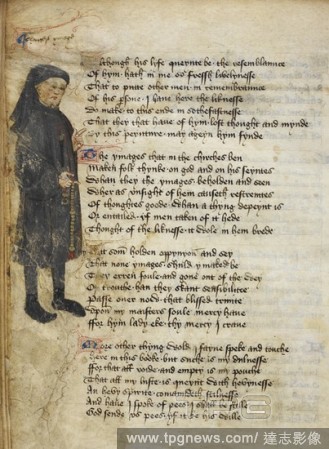 Although his life queynte be the resemblaunce
Of hym hath in me so fressh lyvelynesse
That to putte other men in remembraunce
Of his psone I have here the liknesse
Do make to this ende in sothfastnesse
That they that have of hym lost thought and mynde
By this peynture may ayeyn hym fynde
The ymages that in the chirches ben
Maken folk thynke on god and on his seyntes
Whan they the ymages beholden and seen
Wher as unsight of hem causeth restreyntes
Of thoughtes goode whan a thyng depeynt is
Or entailed yf men taken of it hede
Thought of the liknesse it wole in hem brede
Yet som holden oppynyon and sey
That none ymages shuld ymaked be
They erren foule and gone out of the wey
Of trouthe han they skant sensibilitee
Passe over now that blissed trinite
Upon my maisters soule mercy have
ffor hym lady eke thy mercy I crave
More other thyng wold I fayne speke and touche
here in this booke but suche is my dulnesse
ffor that all voide and empty is my pouche
That all my luste is queynt with hevynesse
An hevy spirite comaundeth stilnesse
And have I spoke of pees I shall be stille
God sende us pees yf it be his wille
www.tpgnews.com/達志影像